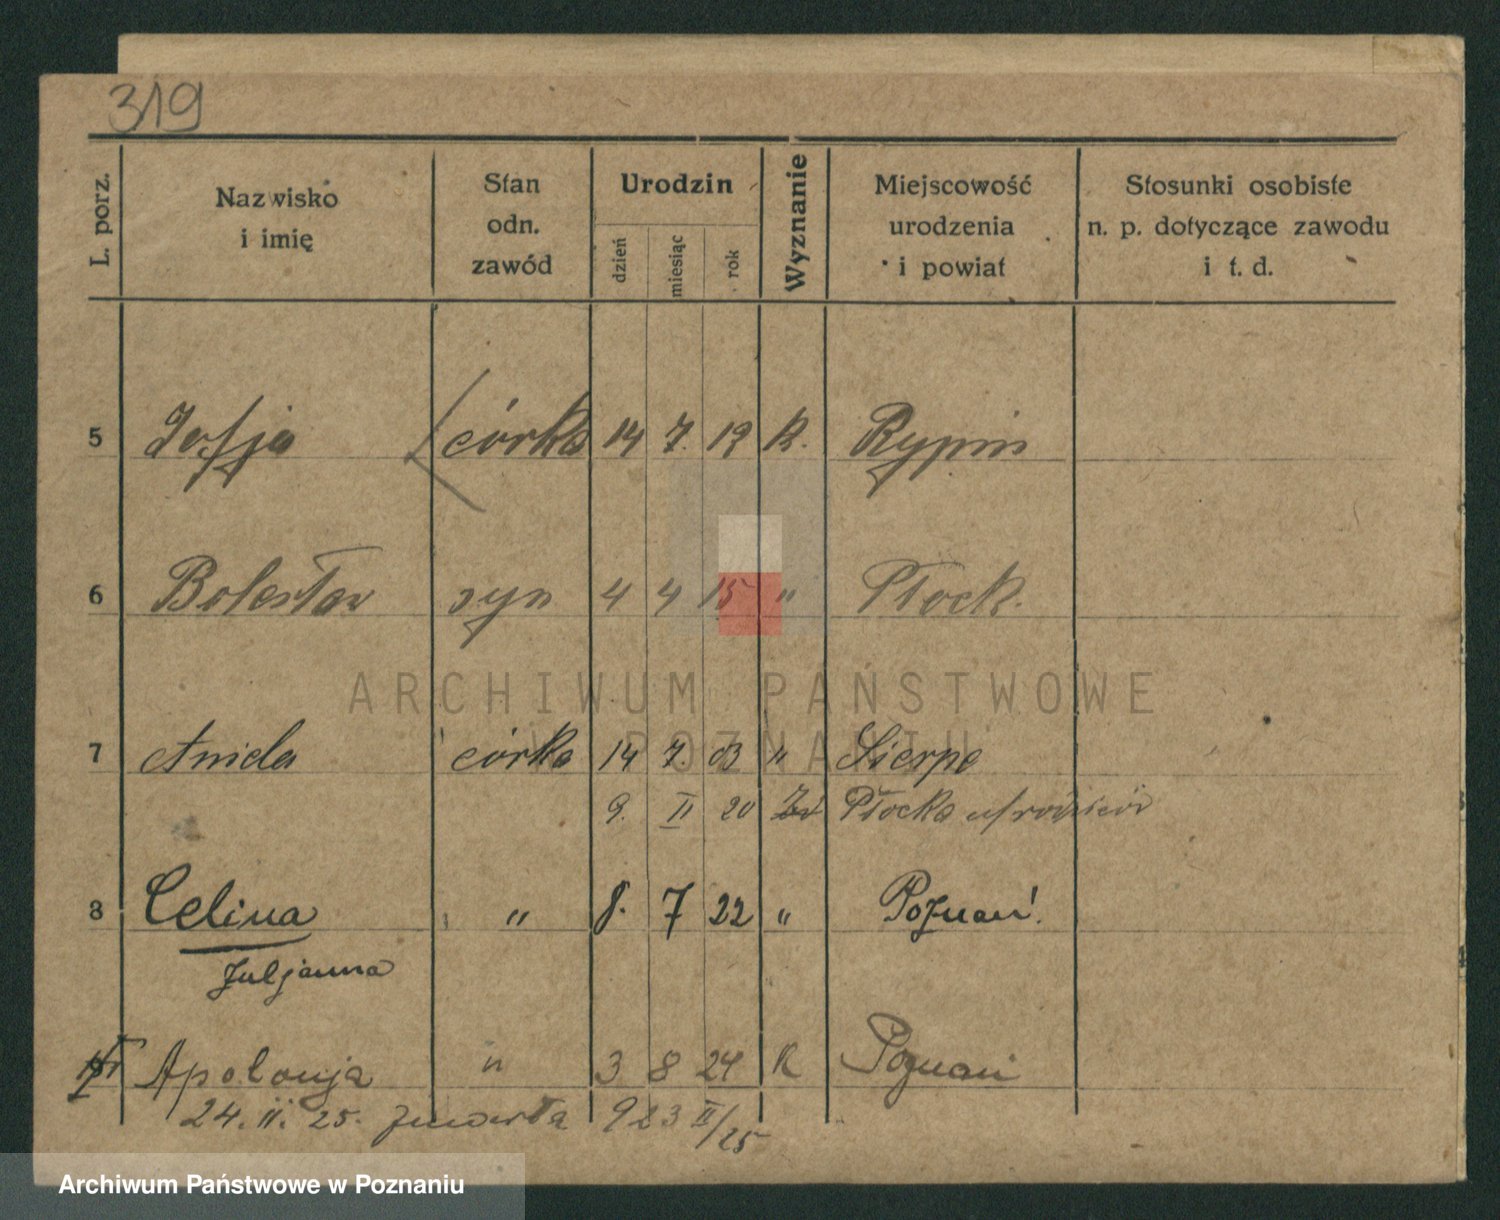 319
L. porz.
Nazwisko
i imię
Stan
odn.
zawód
Urodzin
dzień
miesiąc
rok
Wyznanie
Miejscowość
urodzenia
i powiat
Stosunki osobiste
n. p. dotyczące zawodu
i t. d.
5 Zofja córka 14 7. 19 R. Rypin
6 Bolesław syn 4 4 15 " Płock.
ARCHIWUM PAŃSTWOWE
W POZNANIU
7 Aniela córka 14 7. 03 " Sierpc
9. II 20 Płocka
8 Celina " 8. 7 22 " Poznań.
Juljanna
Apolonja " 3 8 24 R Poznań
24. II. 25. zmarła 923 II/25
Archiwum Państwowe w Poznaniu